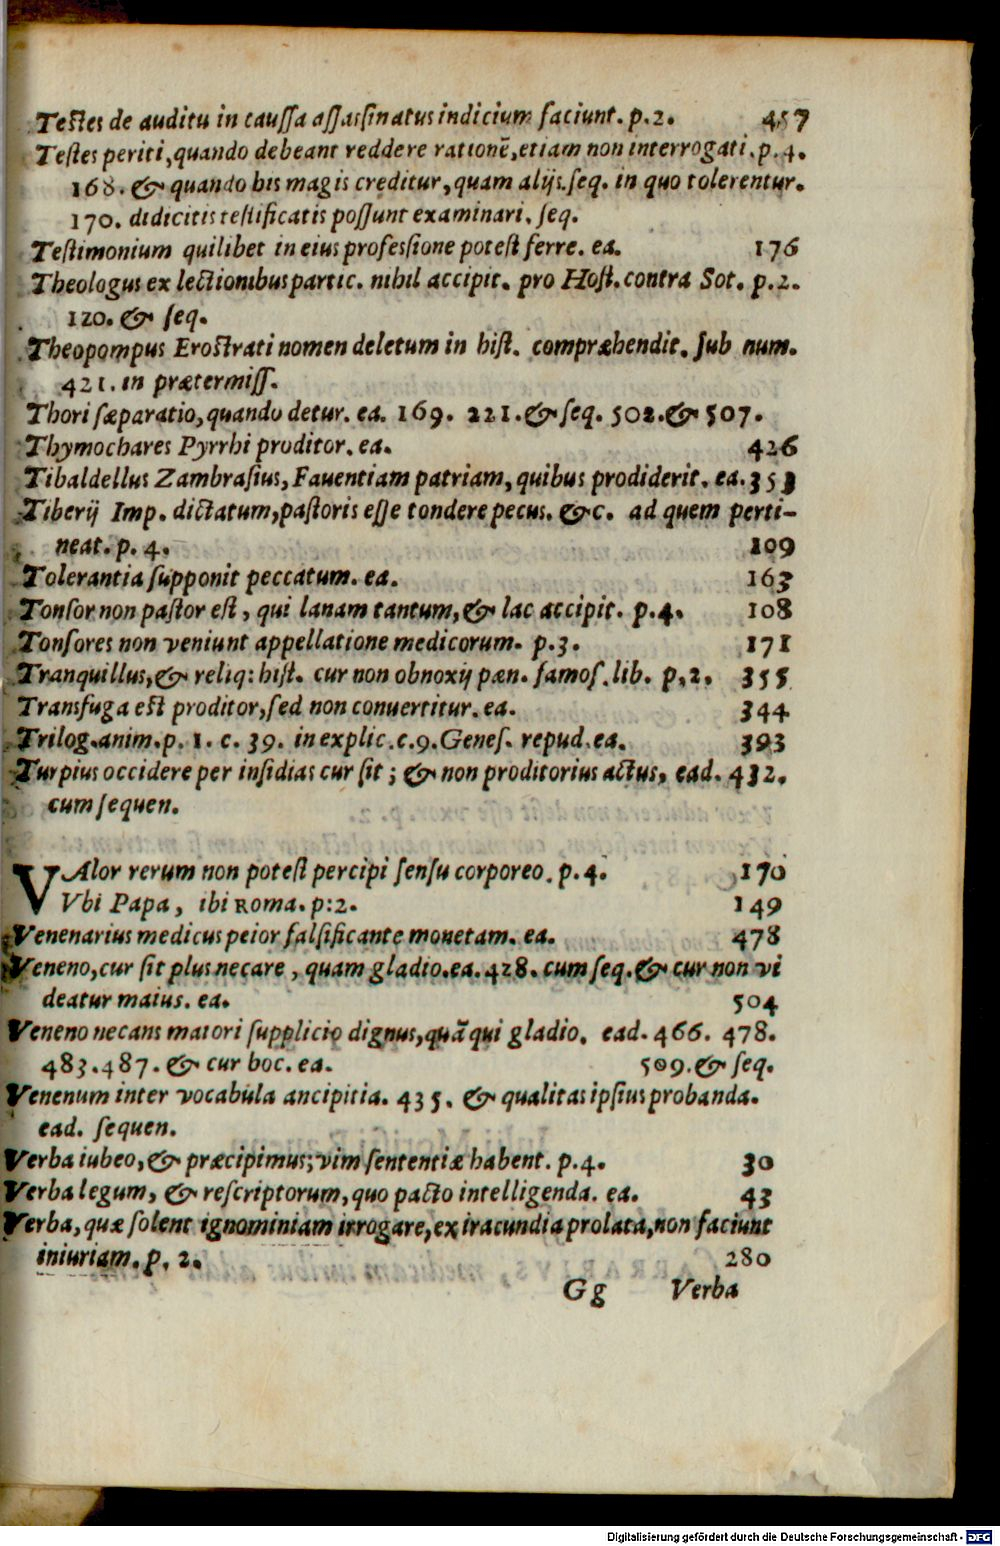 Testes de auditu in caussa assassinatus indicium faciunt. p. 2. 457
Testes periti, quando debeant reddere rationē, etiam non interrogati. p. 4.
168. & quando his magis creditur, quam alijs. seq. in quo tolerentur.
170. didicitis testificatis possunt examinari. seq.
Testimonium quilibet in eius professione potest ferre. ea. 176
Theologus ex lectionibus partic. nihil accipit. pro Host. contra Sot. p. 2.
120. & seq.
Theopompus Erostrati nomen deletum in hist. compræhendit. sub num.
421. in prætermiss.
Thori sæparatio, quando detur. ea. 169. 221. & seq. 502. & 507.
Thymochares Pyrrhi proditor. ea. 426
Tibaldellus Zambrasius, Fauentiam patriam, quibus prodiderit. ea. 353
Tiberij Imp. dictatum, pastoris esse tondere pecus. &c. ad quem perti-
neat. p. 4. 109
Tolerantia supponit peccatum. ea. 163
Tonsor non pastor est, qui lanam tantum, & lac accipit. p. 4. 108
Tonsores non veniunt appellatione medicorum. p. 3. 171
Tranquillus, & reliq: hist. cur non obnoxij pæn. famos. lib. p. 2. 355
Transfuga est proditor, sed non conuertitur. ea. 344
Trilog. anim. p. 1. c. 39. in explic. c. 9. Genes. repud. ea. 393
Turpius occidere per insidias cur sit; & non proditorius actus, ead. 432.
cum sequen.
VAlor rerum non potest percipi sensu corporeo. p. 4. 170
Vbi Papa, ibi Roma. p: 2. 149
Venenarius medicus peior falsificante monetam. ea. 478
Veneno, cur sit plus necare, quam gladio. ea. 428. cum seq. & cur non vi
deatur maius. ea. 504
Veneno necans maiori supplicio dignus, quā qui gladio. ead. 466. 478.
483. 487. & cur hoc. ea. 509. & seq.
Venenum inter vocabula ancipitia. 435. & qualitas ipsius probanda.
ead. sequen.
Verba iubeo, & præcipimus; vim sententiæ habent. p. 4. 30
Verba legum, & rescriptorum, quo pacto intelligenda. ea. 43
Verba, quæ solent ignominiam irrogare, ex iracundia prolata, non faciunt
iniuriam. p. 2. 280
Gg Verba
Digitalisierung gefördert durch die Deutsche Forschungsgemeinschaft - DFG